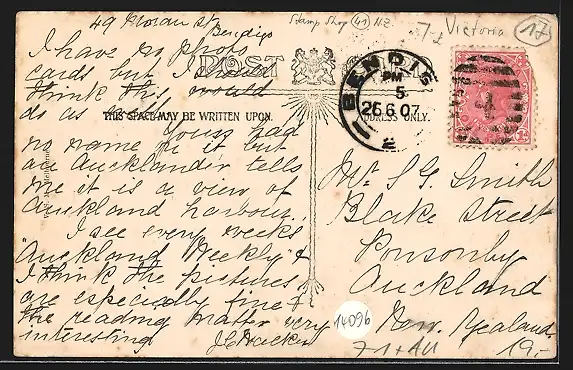 49 Moran St
Bendigo
Stamp Shop 41 NZ
7-2 Victoria
17
I have no photo
cards but I
think this would
do as well
POST CARD
THIS SPACE MAY BE WRITTEN UPON.
ADDRESS ONLY.
BENDIGO
PM
5
26.6.07
2
Yours had
no name on it but
an Aucklander tells
me it is a view of
Auckland harbour.
I see every weeks
"Auckland Weekly" &
I think the pictures
are especially fine &
the reading matter very
interesting
Mr S G Smith
Blake Street
Ponsonby
Auckland
New Zealand
14096
19.-